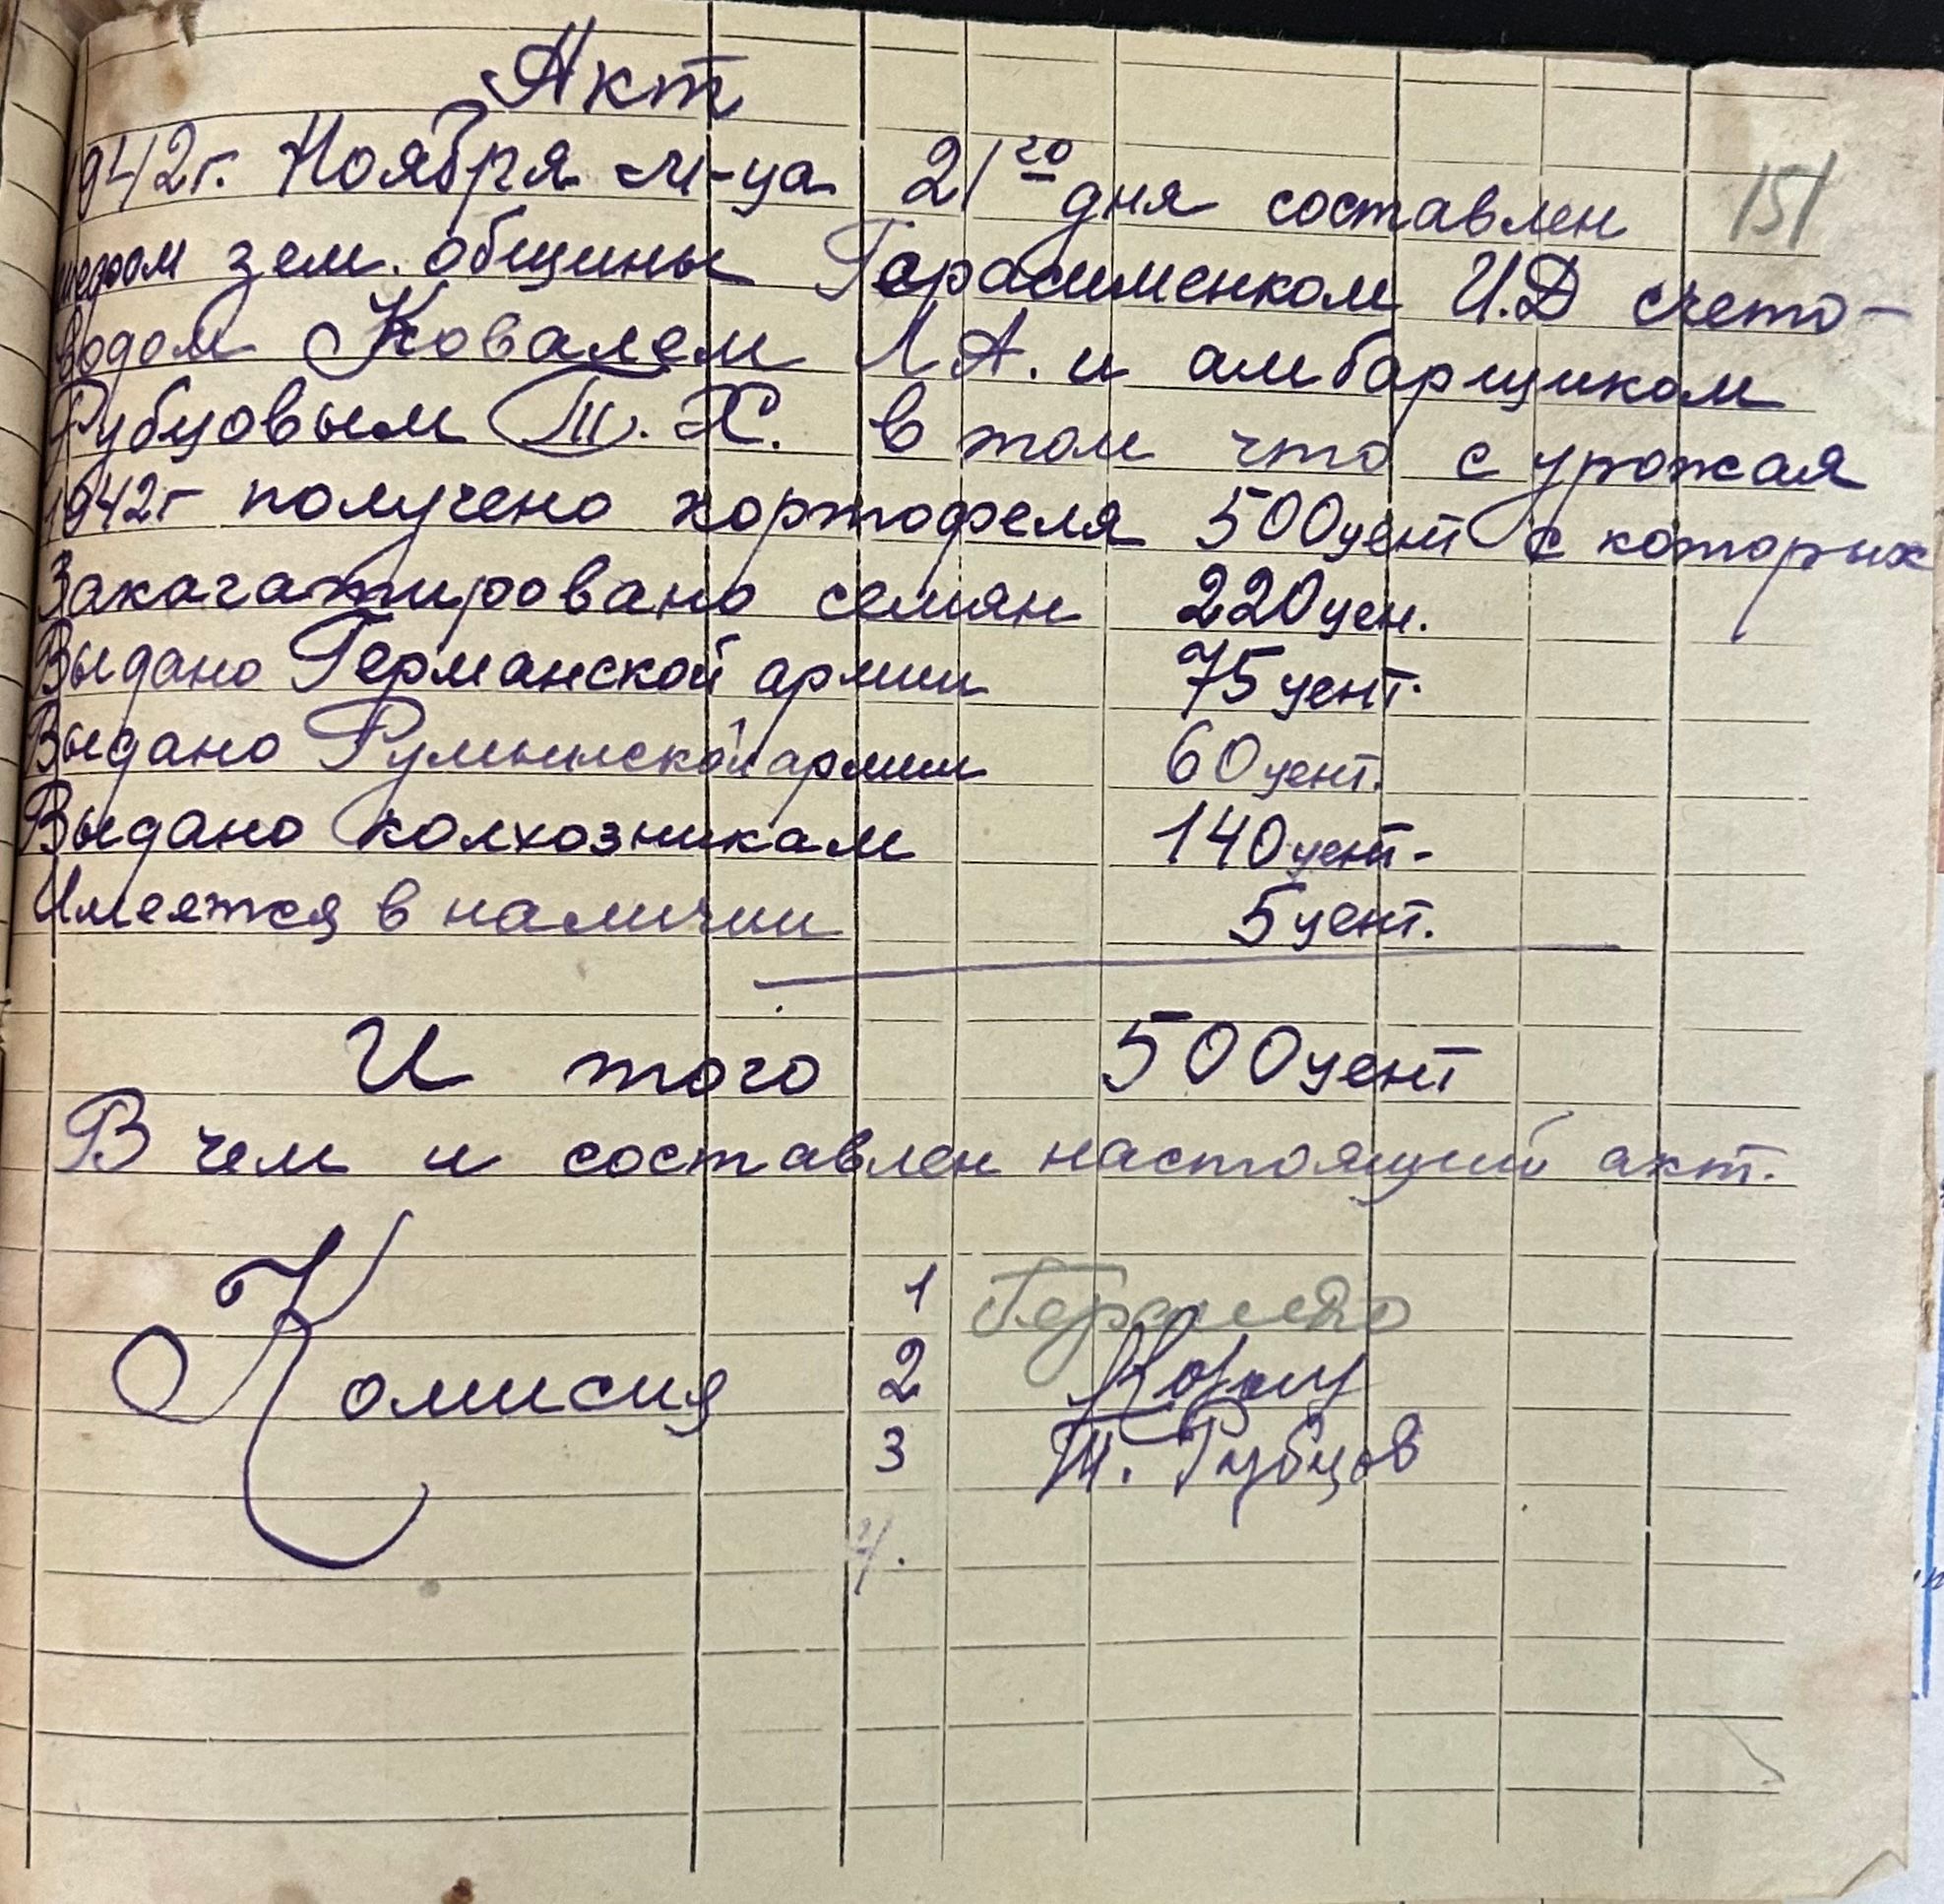 Акт
151
1942г. Ноября м-ца 21го дня составлен
зем. общины Герасименком И.Д счето-
водом Ковалем Л А. и амбарщиком
Рубцовым Т. Х. в том что с урожая
1942г получено картофеля 500цент с которых
Закагатировано семян 220цен.
Выдано Германской армии 75цент.
Выдано Румынской армии 60цент.
Выдано колхозникам 140цент-
Имеется в наличии 5цент.
И того 500цент
В чем и составлен настоящий акт.
Комисия
1
2
3 Т. Рубцов
4.